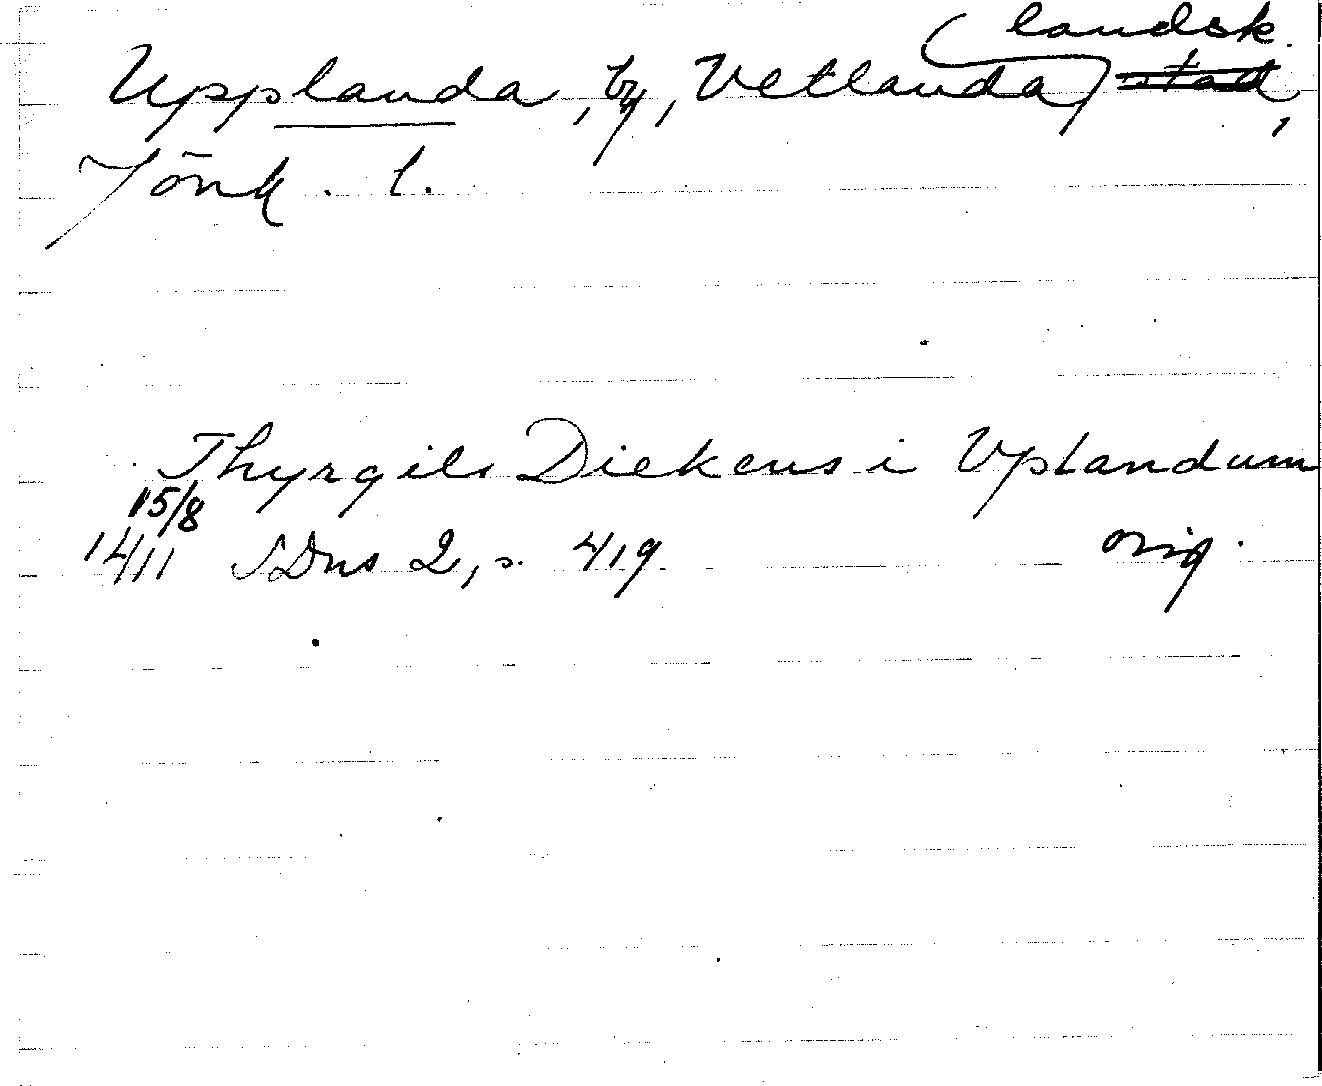 landsk.
Upplanda, by, Vetlanda stad,
Jönk. l.
Thyrgils Diekens i Vplandum
15/8
1411 SDns 2, s. 419 orig.